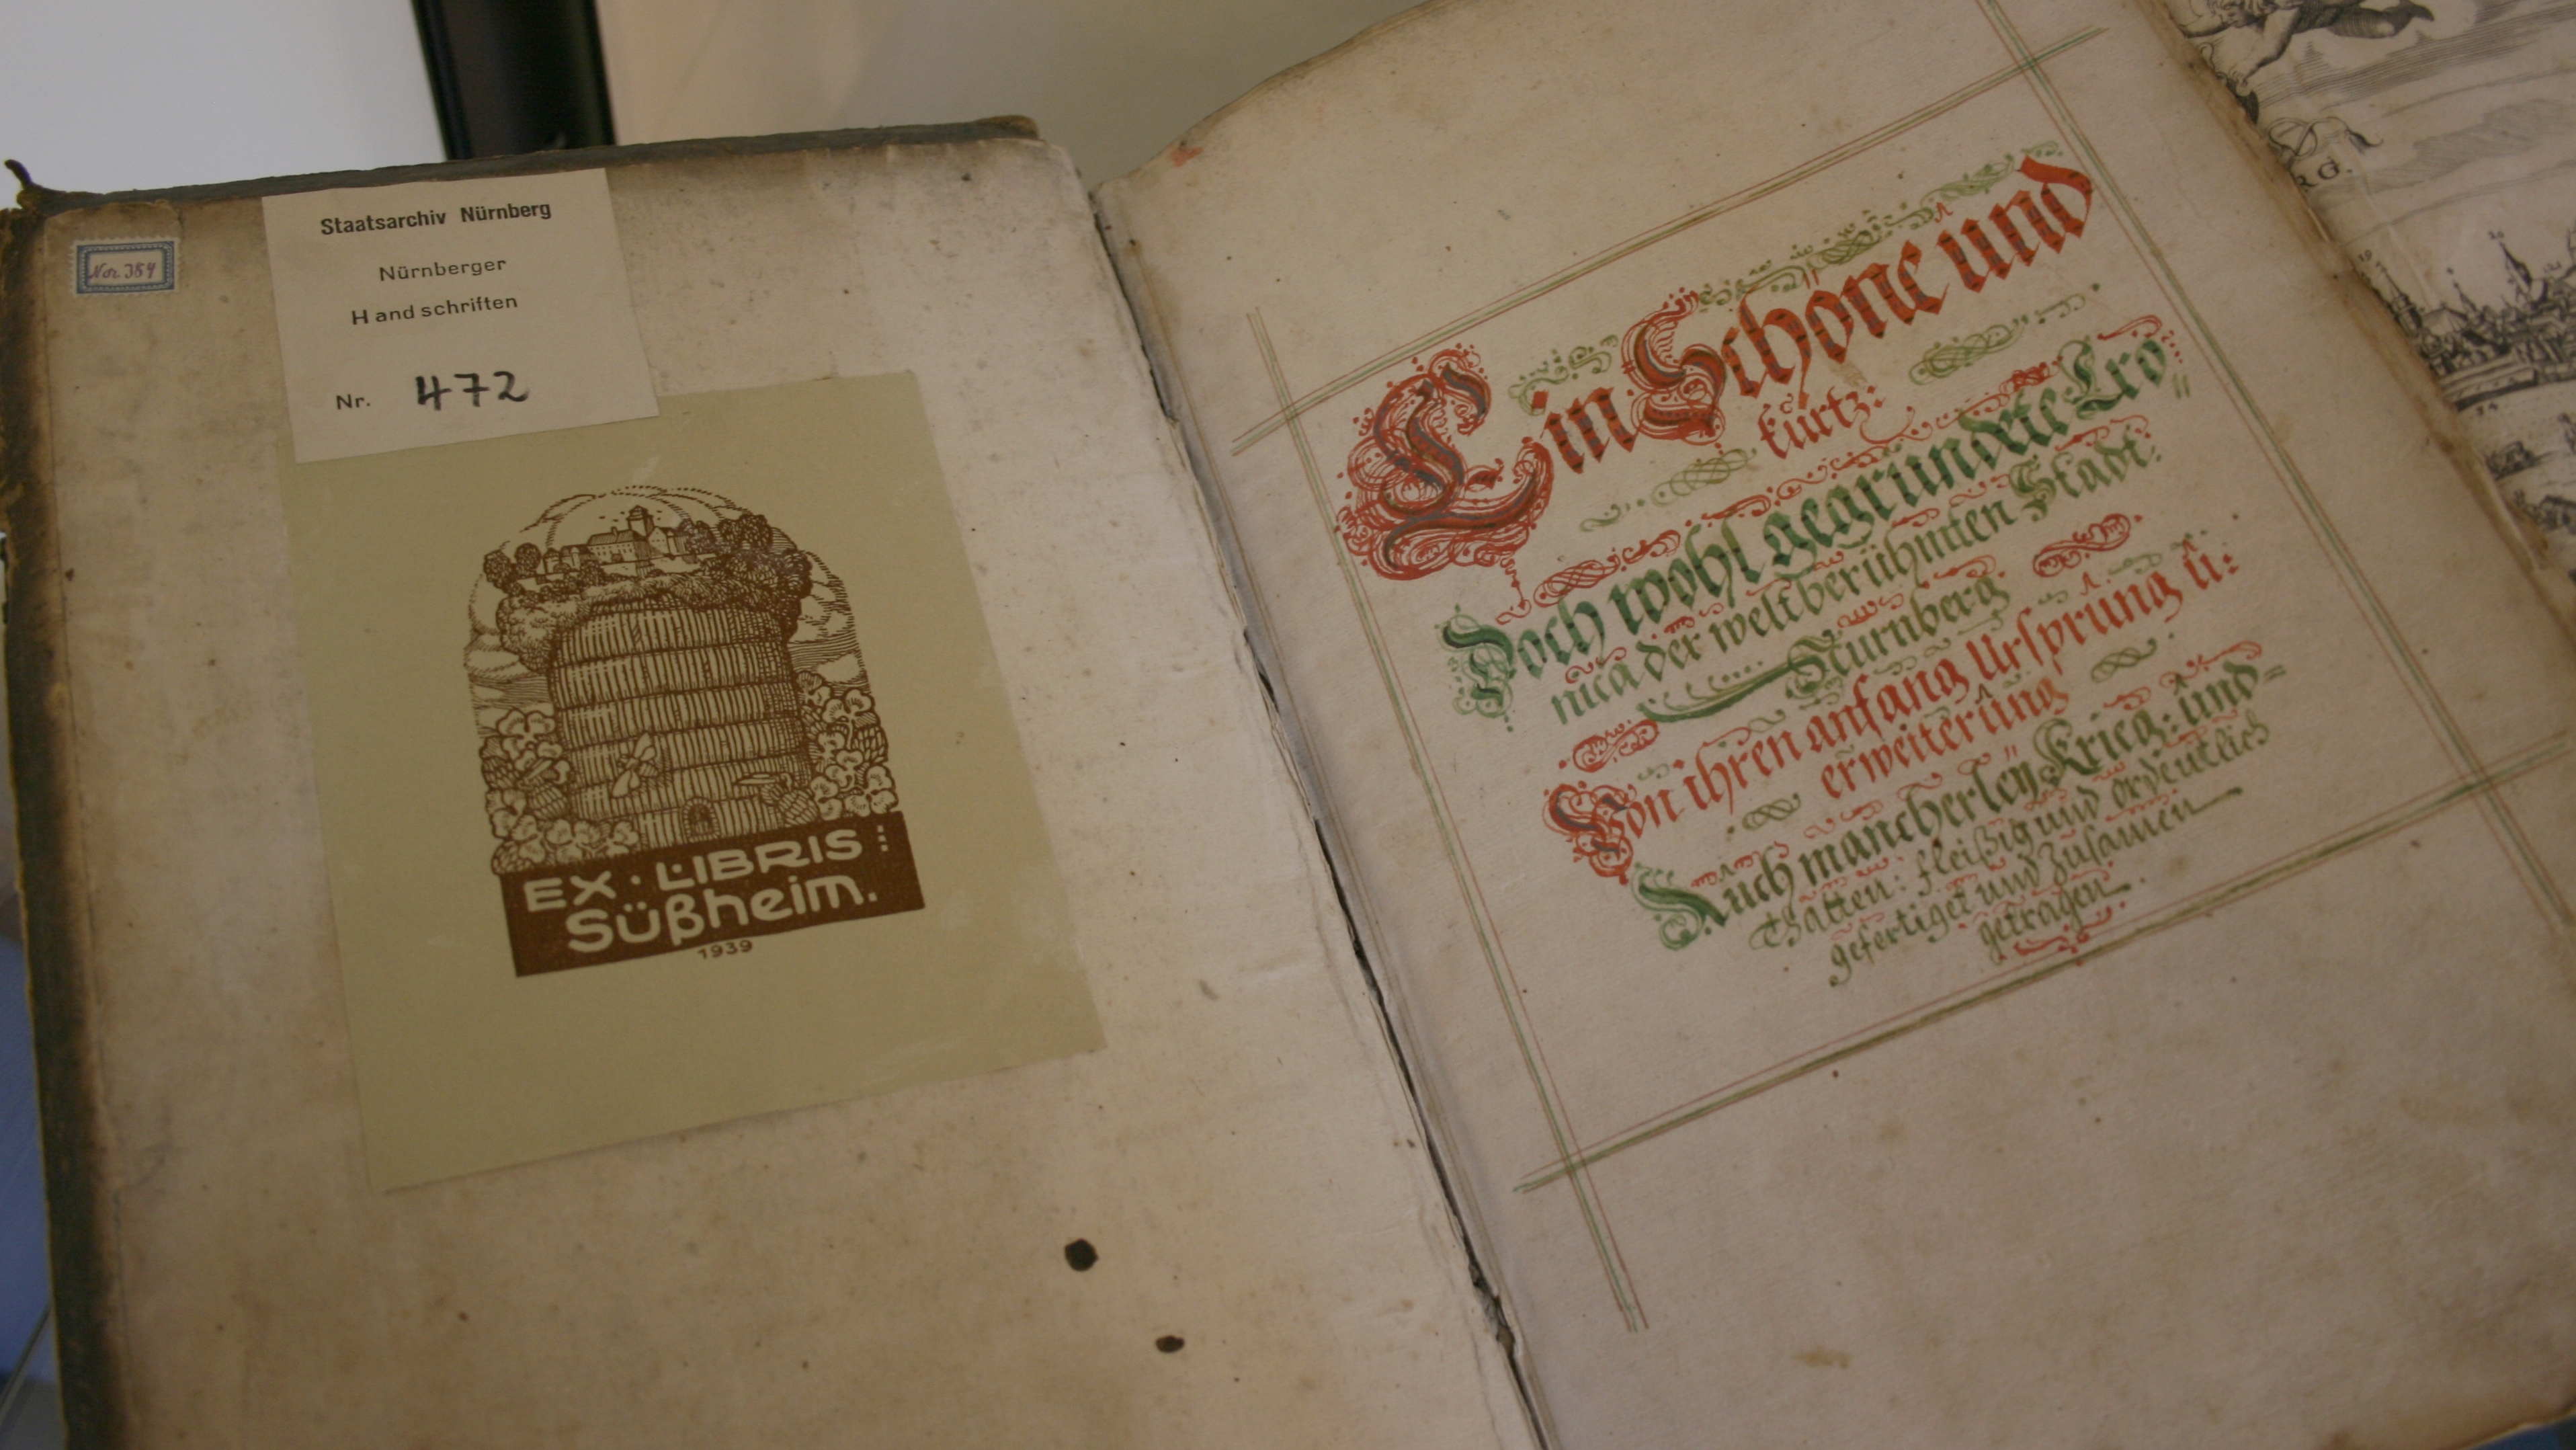 Nor. 384
Staatsarchiv Nürnberg
Nürnberger
Handschriften
Nr. 472
EX · LIBRIS
Süßheim.
1939
Ein Schöne und
kurtz:
Doch wohl gegründete Cro
nica der weltberühmten Stadt.
Nürnberg
Von ihren anfang Ursprung u:
erweiterung
Auch mancherleÿ Krieg: und-
Thatten: fleißig und ordentlich
gefertiget und Zusamen
getragen.
RG.